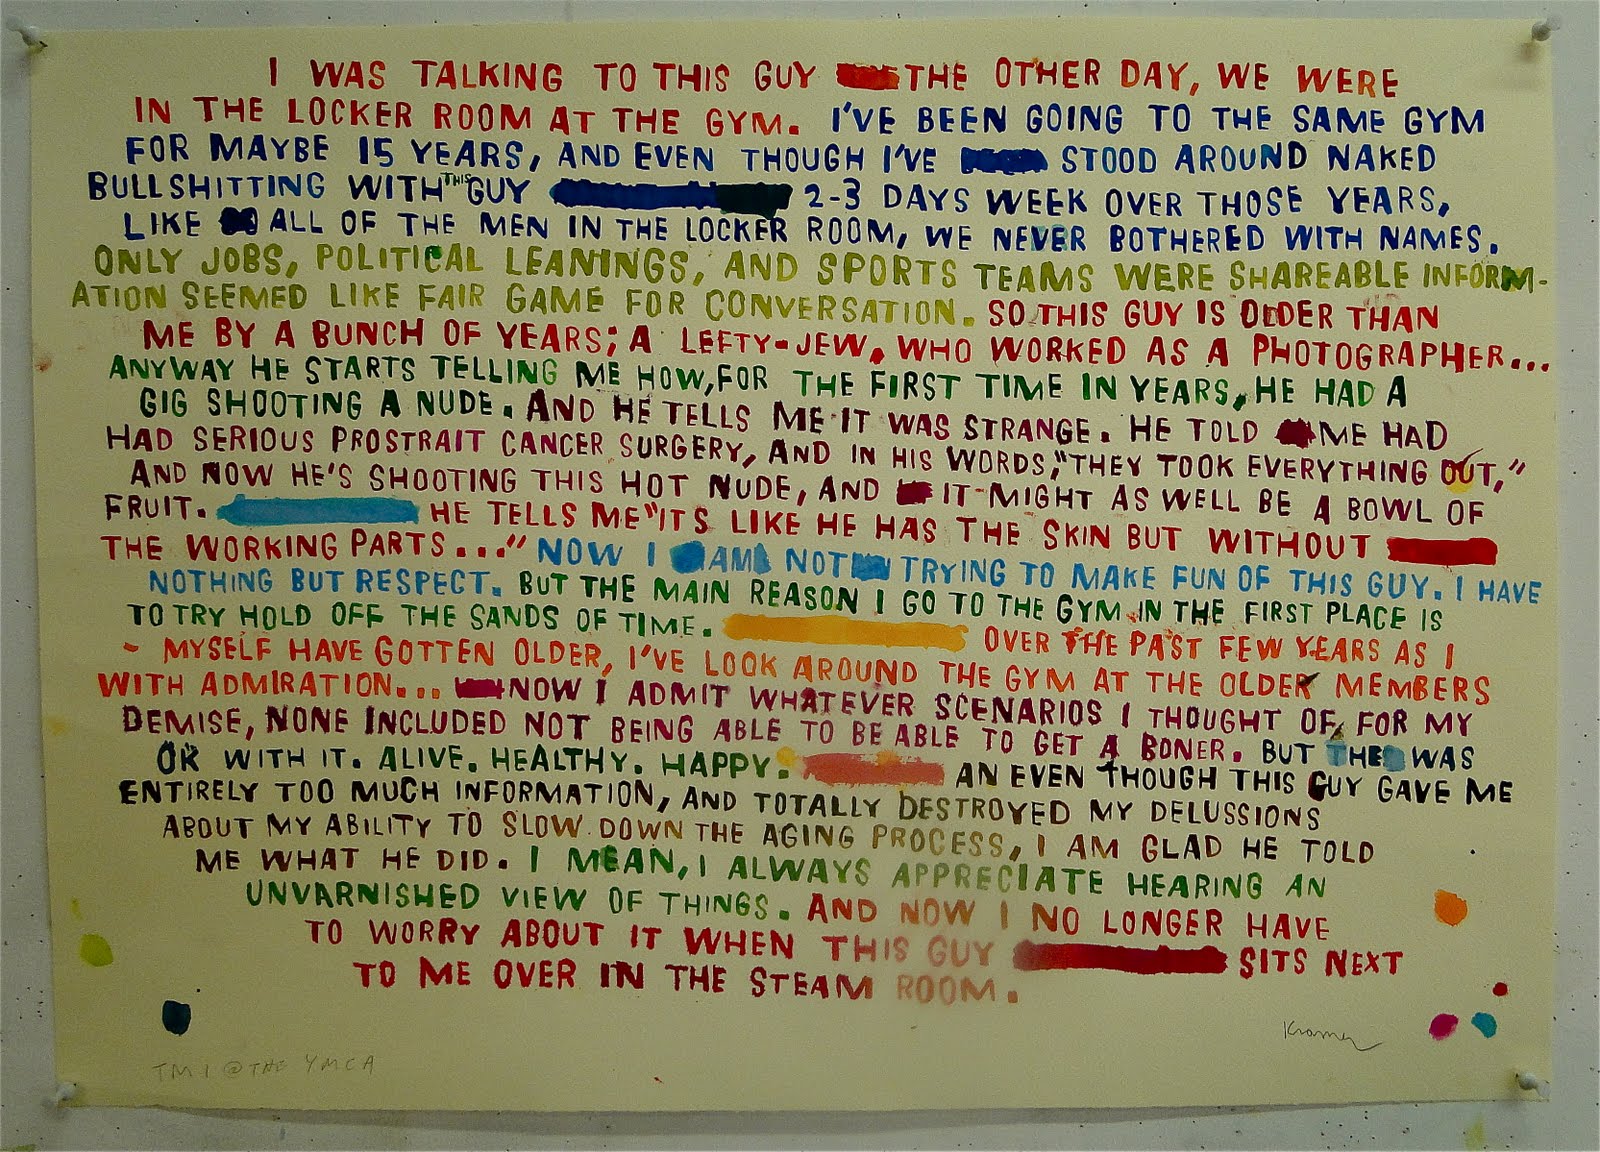 I WAS TALKING TO THIS GUY THE OTHER DAY, WE WERE
IN THE LOCKER ROOM AT THE GYM. I'VE BEEN GOING TO THE SAME GYM
FOR MAYBE 15 YEARS, AND EVEN THOUGH I'VE STOOD AROUND NAKED
BULLSHITTING WITH THIS GUY 2-3 DAYS WEEK OVER THOSE YEARS,
LIKE ALL OF THE MEN IN THE LOCKER ROOM, WE NEVER BOTHERED WITH NAMES.
ONLY JOBS, POLITICAL LEANINGS, AND SPORTS TEAMS WERE SHAREABLE INFORM-
ATION SEEMED LIKE FAIR GAME FOR CONVERSATION. SO THIS GUY IS OLDER THAN
ME BY A BUNCH OF YEARS; A LEFTY-JEW, WHO WORKED AS A PHOTOGRAPHER...
ANYWAY HE STARTS TELLING ME HOW, FOR THE FIRST TIME IN YEARS, HE HAD A
GIG SHOOTING A NUDE. AND HE TELLS ME IT WAS STRANGE. HE TOLD ME HAD
HAD SERIOUS PROSTRAIT CANCER SURGERY, AND IN HIS WORDS, "THEY TOOK EVERYTHING OUT,"
AND NOW HE'S SHOOTING THIS HOT NUDE, AND IT MIGHT AS WELL BE A BOWL OF
FRUIT. HE TELLS ME "ITS LIKE HE HAS THE SKIN BUT WITHOUT
THE WORKING PARTS..." NOW I AM NOT TRYING TO MAKE FUN OF THIS GUY. I HAVE
NOTHING BUT RESPECT. BUT THE MAIN REASON I GO TO THE GYM IN THE FIRST PLACE IS
TO TRY HOLD OFF THE SANDS OF TIME. OVER THE PAST FEW YEARS AS I
MYSELF HAVE GOTTEN OLDER, I'VE LOOK AROUND THE GYM AT THE OLDER MEMBERS
WITH ADMIRATION... NOW I ADMIT WHATEVER SCENARIOS I THOUGHT OF, FOR MY
DEMISE, NONE INCLUDED NOT BEING ABLE TO BE ABLE TO GET A BONER. BUT THE WAS
OK WITH IT. ALIVE. HEALTHY. HAPPY. AN EVEN THOUGH THIS GUY GAVE ME
ENTIRELY TOO MUCH INFORMATION, AND TOTALLY DESTROYED MY DELUSSIONS
ABOUT MY ABILITY TO SLOW DOWN THE AGING PROCESS, I AM GLAD HE TOLD
ME WHAT HE DID. I MEAN, I ALWAYS APPRECIATE HEARING AN
UNVARNISHED VIEW OF THINGS. AND NOW I NO LONGER HAVE
TO WORRY ABOUT IT WHEN THIS GUY SITS NEXT
TO ME OVER IN THE STEAM ROOM.
Kramer
TMI @ THE YMCA